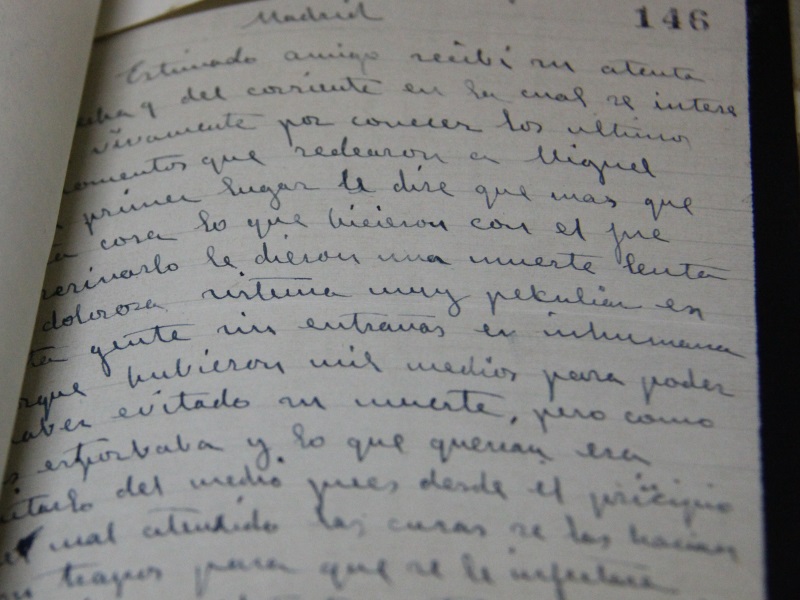 Madrid
146
Estimado amigo recibi su atenta
y del corriente en la cual se intere
vivamente por conocer los ultimos
momentos que redearon a Miguel
primer lugar le dire que mas que
cosa lo que hicieron con el fue
le dieron una muerte lenta
dolorosa sistema muy pekuliar en
ta gente sin entrañas e inhumana
rque hubieron mil medios para poder
aber evitado su muerte, pero como
estorbaba y lo que querian era
itarlo del medio pues desde el principio
mal atendido las curas se las hacian
on trapos para que se le infectara